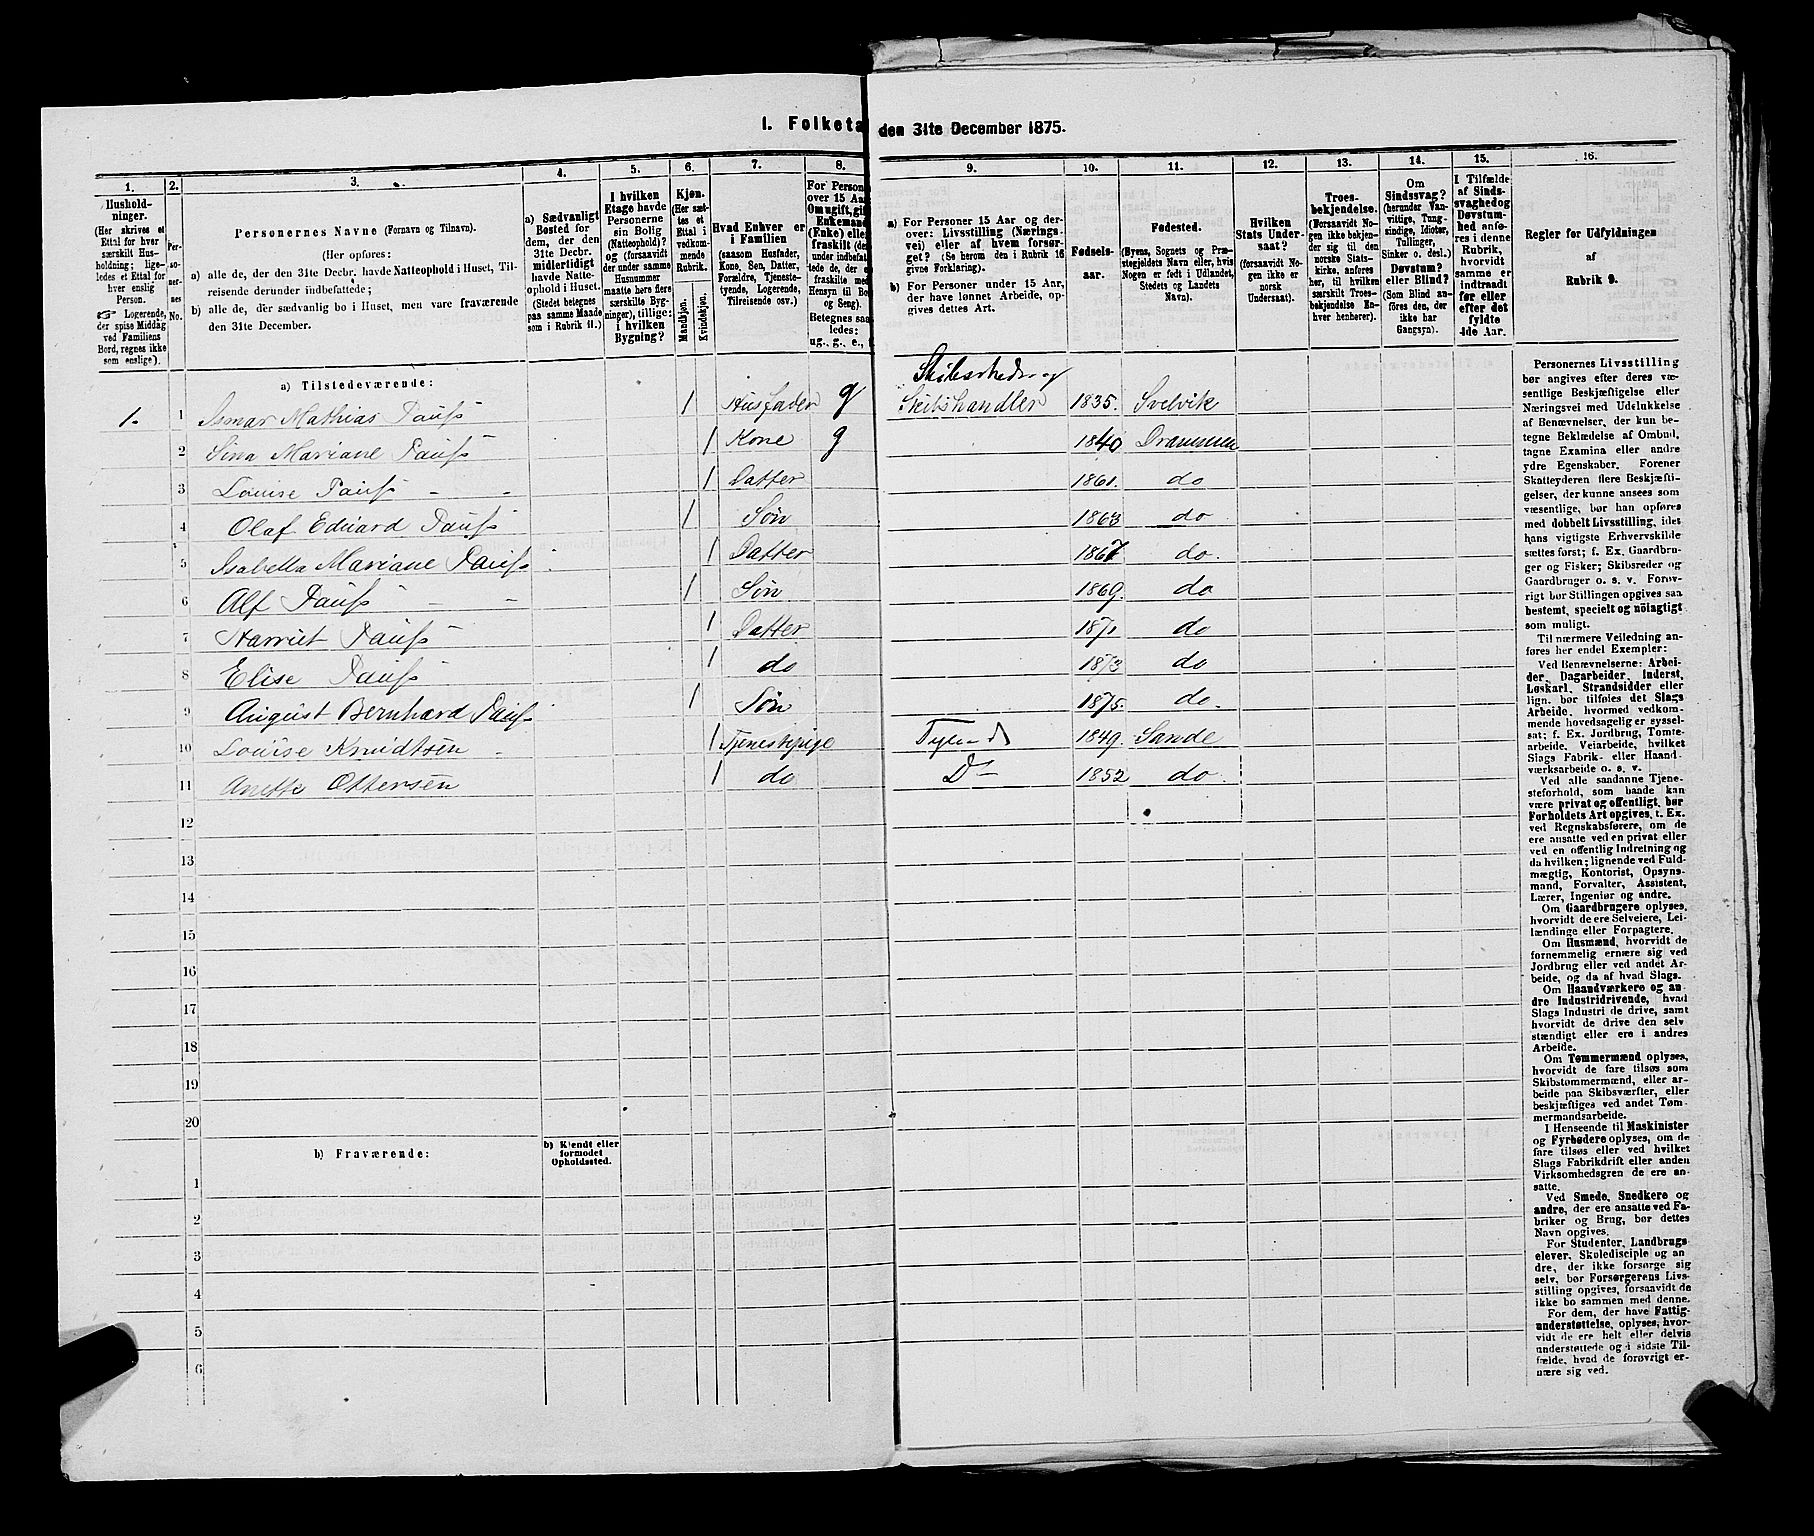 I. Folketa den 31te December 1875.
1. 2. 3. 4. 5. 6. 7. 8. 9. 10. 11. 12. 13. 14. 15. 16.
Hushold-
ninger.
(Her skrives et
Ettal for hver
særskilt Hus-
holdning; lige-
ledes et Ettal for
hver enslig
Person.
☞ Logerende,
der spise Middag
ved Familiens
Bord, regnes ikke
som enslige).
Per-
so-
ner-
nes
No.
Personernes Navne (Fornavn og Tilnavn).
(Her opføres:
a) alle de, der den 31te Decbr. havde Natteophold i Huset, Til-
reisende derunder indbefattede;
b) alle de, der sædvanlig bo i Huset, men vare fraværende
den 31te December.
a) Sædvanligt
Bosted for
dem, der den
31te Decbr.
midlertidigt
havde Natte-
ophold i Huset.
(Stedet betegnes
paa samme Maade
som i Rubrik 11.)
I hvilken
Etage havde
Personerne
sin Bolig
(Natteophold)?
og (forsaavidt
der under samme
Husnummer
maatte here flere
særskilte Byg-
ninger), tillige:
i hvilken
Bygning?
Kjøn.
(Her sæt-
tes et
Ettal i
vedkom-
mende
Rubrik.
Mandkjøn.
Kvindekjøn.
Hvad Enhver er
i Familien
(saasom Husfader,
Kone, Søn, Datter,
Forældre, Tjeneste-
tyende, Logerende,
Tilreisende osv.)
For Person
over 15 Aa
Om ugift, gif
Enkemand
(Enke) elle
fraskilt (de
under indbefat-
tede de, der e
fraskilte med
Hensyn til Bo
og Seng).
Betegnes saa
ledes:
ug., g., e., f
a) For Personer 15 Aar og der-
over: Livsstilling (Nærings-
vei) eller af hvem forsør-
get? (Se herom den i Rubrik 16
givne Forklaring).
b) For Personer under 15 Aar,
der have lønnet Arbeide, op-
gives dettes Art.
Fødsels-
aar.
Fødested.
(Byens, Sognets og Præ-
stegjeldets Navn eller, hvis
Nogen er født i Udlandet,
Stedets og Landets
Navn).
Hvilken
Stats Under-
saat?
(forsaavidt No-
gen ikke er
norsk
Undersaat).
Troes-
bekjendelse.
(Forsaavidt No-
gen ikke bekjen-
der sig til den
norske Stats-
kirke, anføres
her, til hvilken
særskilt Troes-
bekjendelse En-
hver henhører).
Om
Sindssvag?
(herunder Van-
vittige, Tung-
sindige, Idioter,
Tullinger,
Sinker o. desl.)
Døvstum?
eller Blind?
(Som Blind an-
føres den, der
ikke har
Gangsyn).
I Tilfælde
af Sinds-
svaghed og
Døvstum-
hed anfø-
res i denne
Rubrik,
hvorvidt
samme er
indtraadt
før eller
efter det
fyldte
4de Aar.
Regler for Udfyldningen
af
Rubrik 9.
a) Tilstedeværende:
1. 1 Ismar Mathias Pauss 1 Husfader g Skibsrheder og Skibshandler 1835. Svelvik
2 Sina Mariane Pauss 1 Kone g 1840 Drammen
3 Louise Pauss - - 1 Datter 1861. do
4 Olaf Eduard Pauss 1 Søn 1863 do
5 Isabella Mariane Pauss 1 Datter 1867 do.
6 Alf Pauss - - 1 Søn 1869. do
7 Harriet Pauss 1 Datter 1871 do
8 Elise Pauss 1 do 1873 do
9 August Bernhard Pauss 1 Søn 1875. do.
10 Louise Knudtsen 1 Tjenestepige 1849. Sande
11 Anette Ottersen 1 do D- 1852 do.
12
13
14
15
16
17
18
19
20
b) Fraværende:
b) Kjendt eller
formodet
Opholdssted.
1
2
3
4
5
6
Personernes Livsstilling
bør angives efter deres væ-
sentlige Beskjæftigelse eller
Næringsvei med Udelukkelse
af Benævnelser, der kun be-
tegne Beklædelse af Ombud,
tagne Examina eller andre
ydre Egenskaber. Forener
Skatteyderen flere Beskjæfti-
gelser, der kunne ansees som
væsentlige, bør han opføres
med dobbelt Livsstilling, idet
hans vigtigste Erhvervskilde
sættes først; f. Ex. Gaardbru-
ger og Fisker; Skibsreder og
Gaardbruger o. s. v. Forøv-
rigt bør Stillingen opgives saa
bestemt, specielt og nöiagtigt
som muligt.
Til nærmere Veiledning an-
føres her endel Exempler:
Ved Benævnelserne: Arbei-
der, Dagarbeider, Inderst,
Løskarl, Strandsidder eller
lign. bør tilføies det Slags
Arbeide, hvormed vedkom-
mende hovedsagelig er syssel-
sat; f. Ex. Jordbrug, Tomte-
arbeide, Veiarbeide, hvilket
Slags Fabrik- eller Haand-
værksarbeide o. s. v.
Ved alle saadanne Tjene-
steforhold, som baade kan
være privat og offentligt, bør
Forholdets Art opgives, t. Ex.
ved Regnskabsførere, om de
ere ansatte ved en privat eller
ved en offentlig Indretning og
da hvilken; lignende ved Fuld-
mægtig, Kontorist, Opsyns-
mand, Forvalter, Assistent,
Lærer, Ingeniør og andre.
Om Gaardbrugere oplyses,
hvorvidt de ere Selveiere, Lei-
lændinge eller Forpagtere.
Om Husmænd, hvorvidt de
fornemmelig ernære sig ved
Jordbrug eller ved andet Ar-
beide, og da af hvad Slags.
Om Haandværkere og an-
dre Industridrivende, hvad
Slags Industri de drive, samt
hvorvidt de drive den selv
stændigt eller ere i andres
Arbeide.
Om Tømmermænd oplyses,
hvorvidt de fare tilsøs som
Skibstømmermænd, eller ar-
beide paa Skibsværfter, eller
beskjæftiges ved andet Tøm-
mermandsarbeide.
I Henseende til Maskinister
og Fyrbødere oplyses, om de
fare tilsøs eller ved hvilket
Slags Fabrikdrift eller anden
Virksomhedsgren de ere an-
satte.
Ved Smede, Snedkere og
andre, der ere ansatte ved Fa-
briker og Brug, bør dettes
Navn opgives.
For Studenter, Landbrugs
elever, Skoledisciple og an
dre, der ikke forsørge sig
selv, bør Forsørgerens Livs-
stilling opgives, forsaavidt de
ikke bo sammen med denne.
For dem, der have Fattig-
understøttelse, oplyses, hvor-
vidt de ere helt eller delvis
understøttede og i sidste Til-
fælde, hvad de forøvrigt er-
nære sig ved.